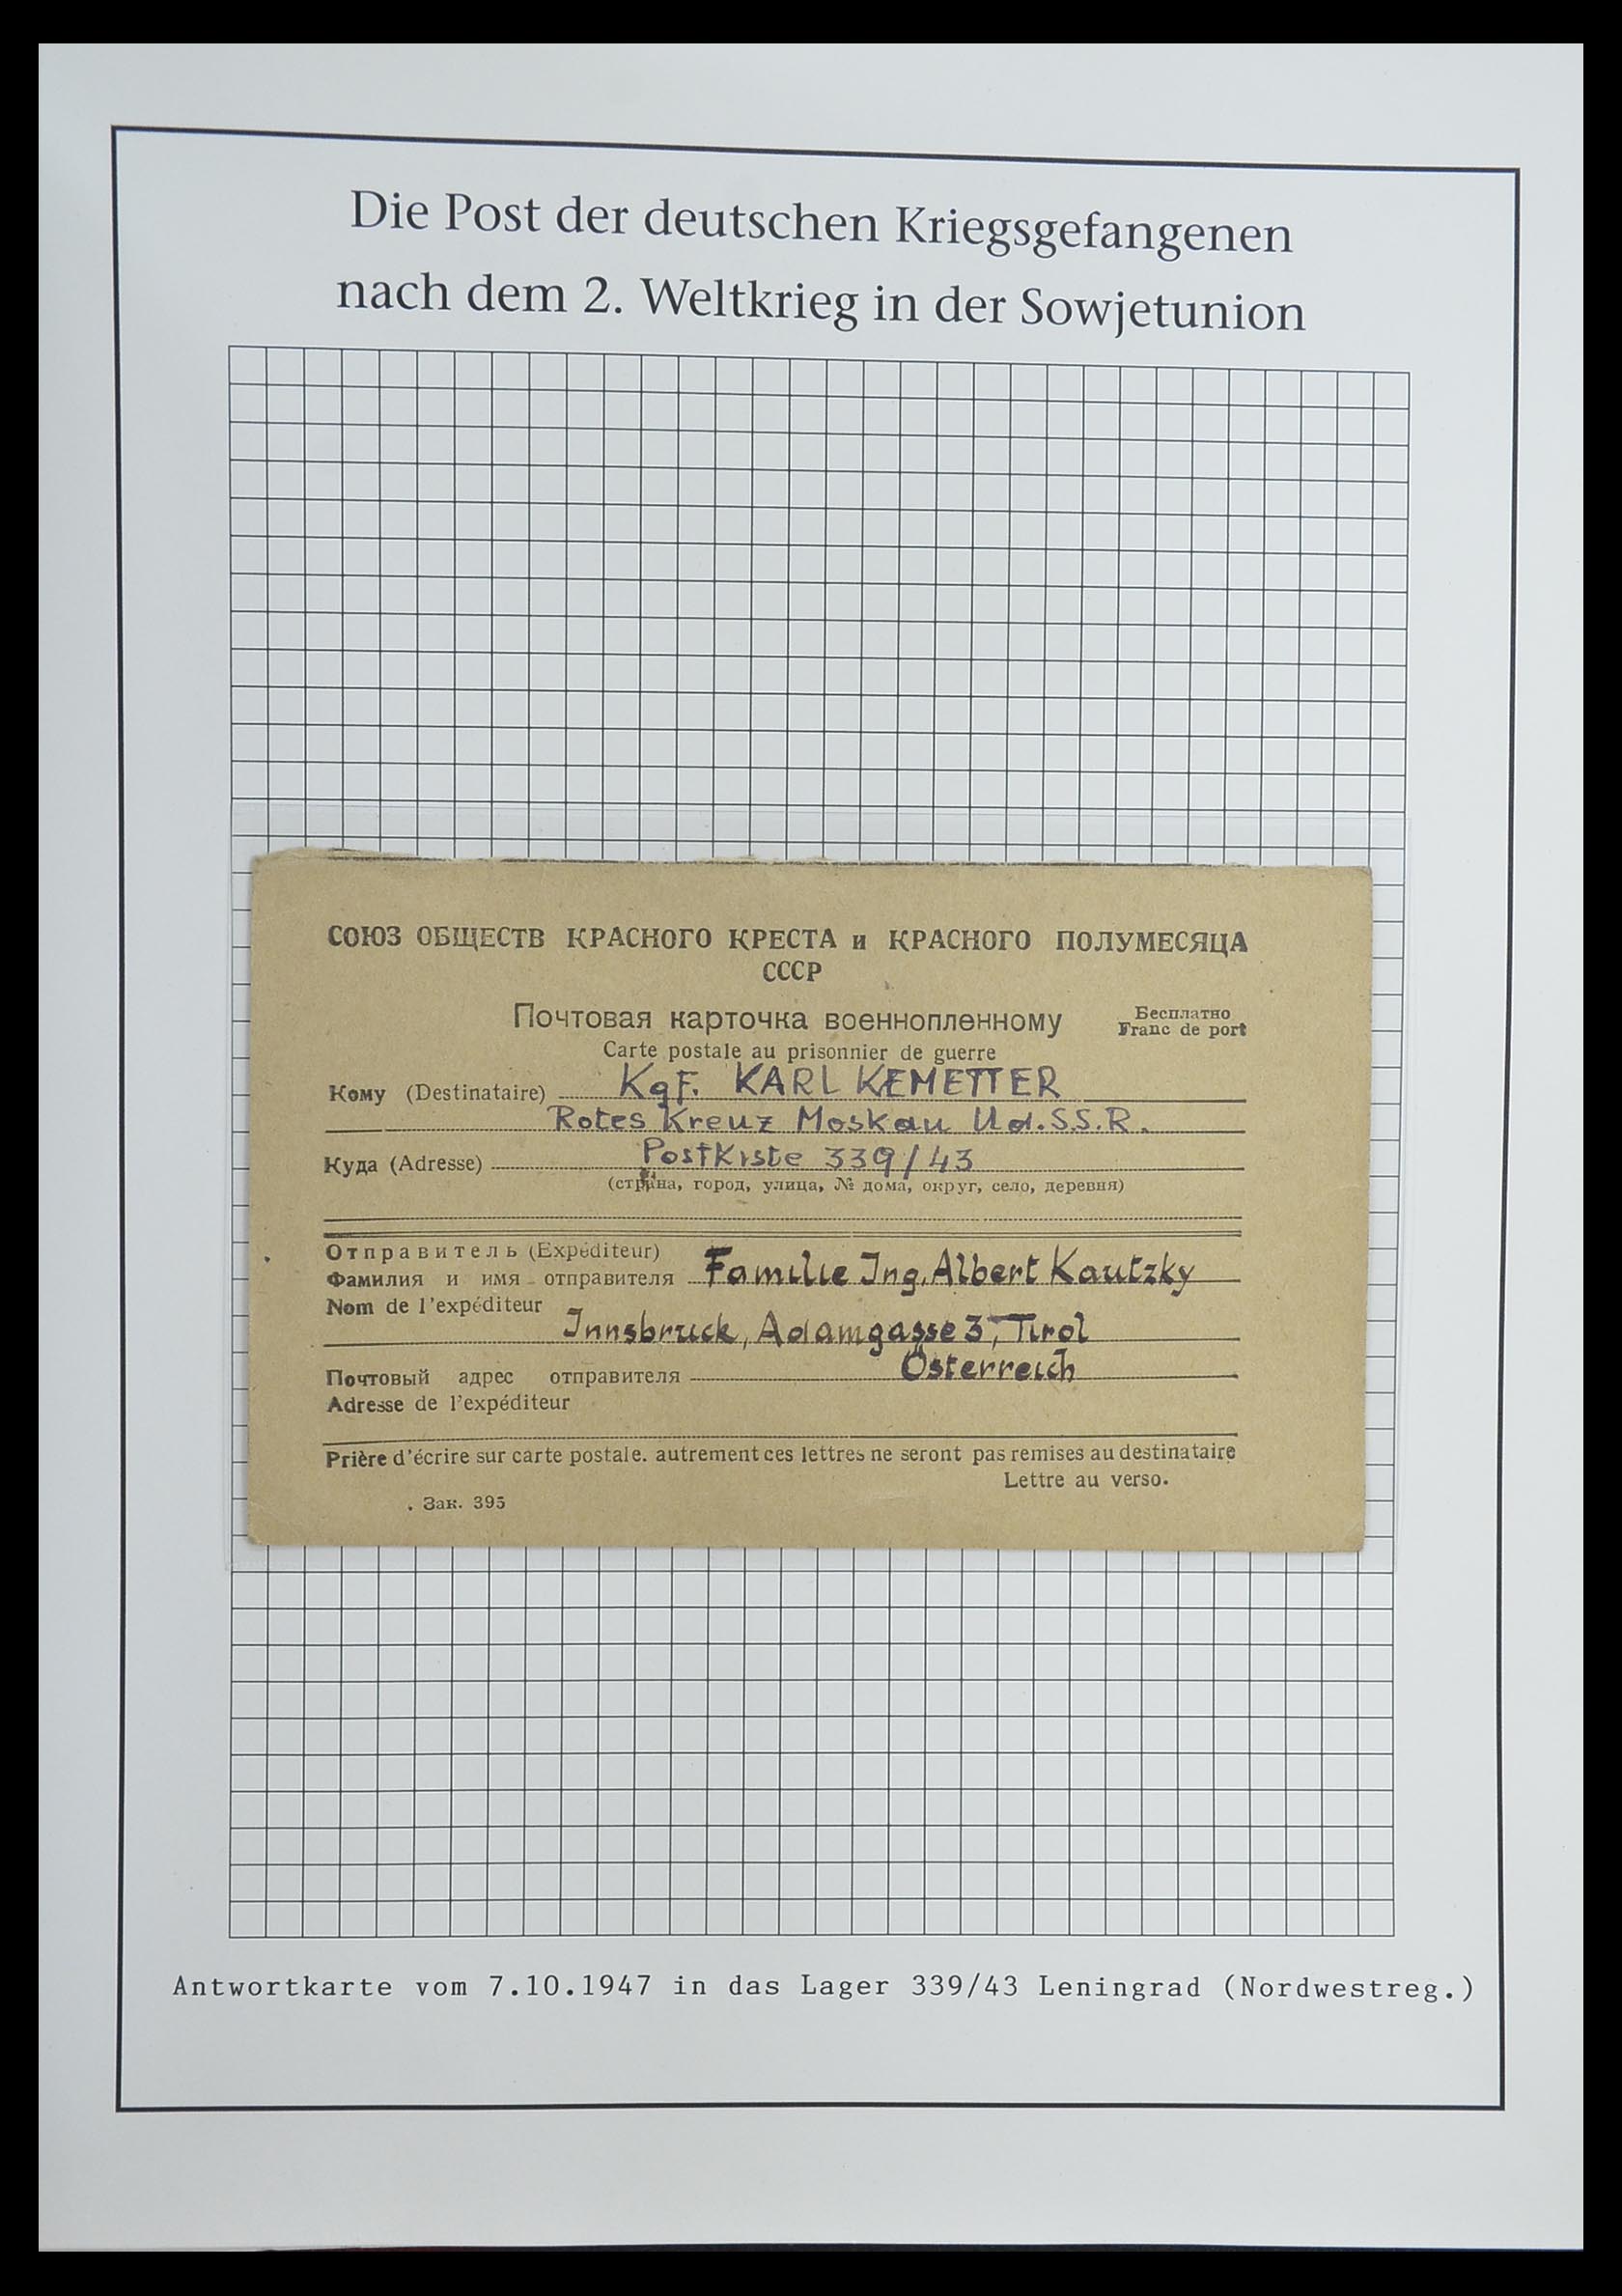 Die Post der deutschen Kriegsgefangenen
nach dem 2. Weltkrieg in der Sowjetunion
СОЮЗ ОБЩЕСТВ КРАСНОГО КРЕСТА и КРАСНОГО ПОЛУМЕСЯЦА
СССР
Почтовая карточка военнопленному
Бесплатно
Franc de port
Carte postale au prisonnier de guerre
Кому (Destinataire) Kgf. KARL KEMETTER
Rotes Kreuz Moskau Ud.S.S.R.
Куда (Adresse) Postkiste 339/43
(страна, город, улица, № дома, округ, село, деревня)
Отправитель (Expéditeur)
Фамилия и имя отправителя Familie Ing. Albert Kautzky
Nom de l'expéditeur
Innsbruck, Adamgasse 3, Tirol
Österreich
Почтовый адрес отправителя
Adresse de l'expéditeur
Prière d'écrire sur carte postale. autrement ces lettres ne seront pas remises au destinataire
Lettre au verso.
. Зак. 395
Antwortkarte vom 7.10.1947 in das Lager 339/43 Leningrad (Nordwestreg.)